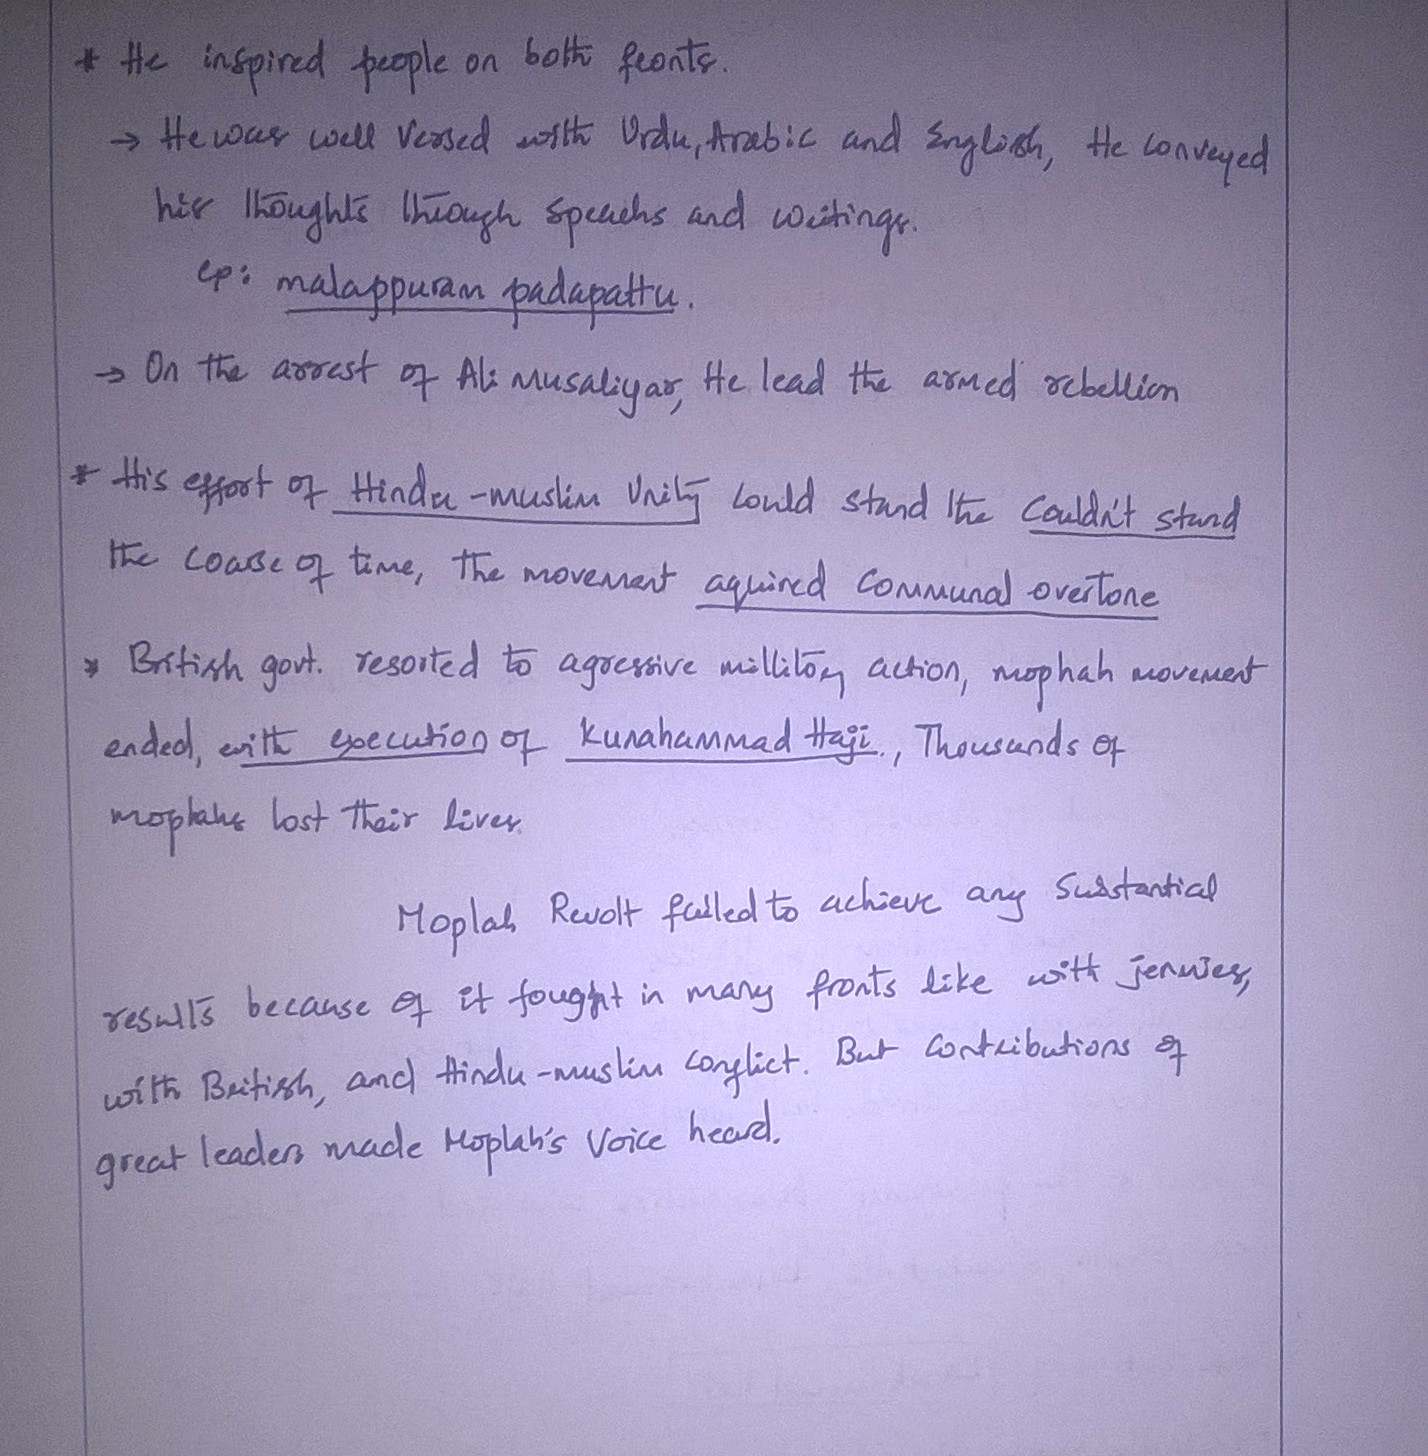 * He inspired people on both fronts.
→ He was well versed with Urdu, Arabic and English, He conveyed
his thoughts through speachs and writings.
ep: malappuram padapattu.
→ On the arrest of Ali Musaliyar, He lead the armed rebellion
* His effort of Hindu-muslim Unity could stand the Couldn't stand
the coarse of time, The movement aquired Communal overtone
* British govt. resorted to agressive millitary action, mophah movement
ended, with execution of Kunahammad Haji., Thousands of
moplahs lost their lives.
Moplah Revolt failed to achieve any Substantial
results because of it fought in many fronts like with jenmies,
with British, and Hindu-muslim conflict. But Contributions of
great leaders made Moplah's Voice heard.